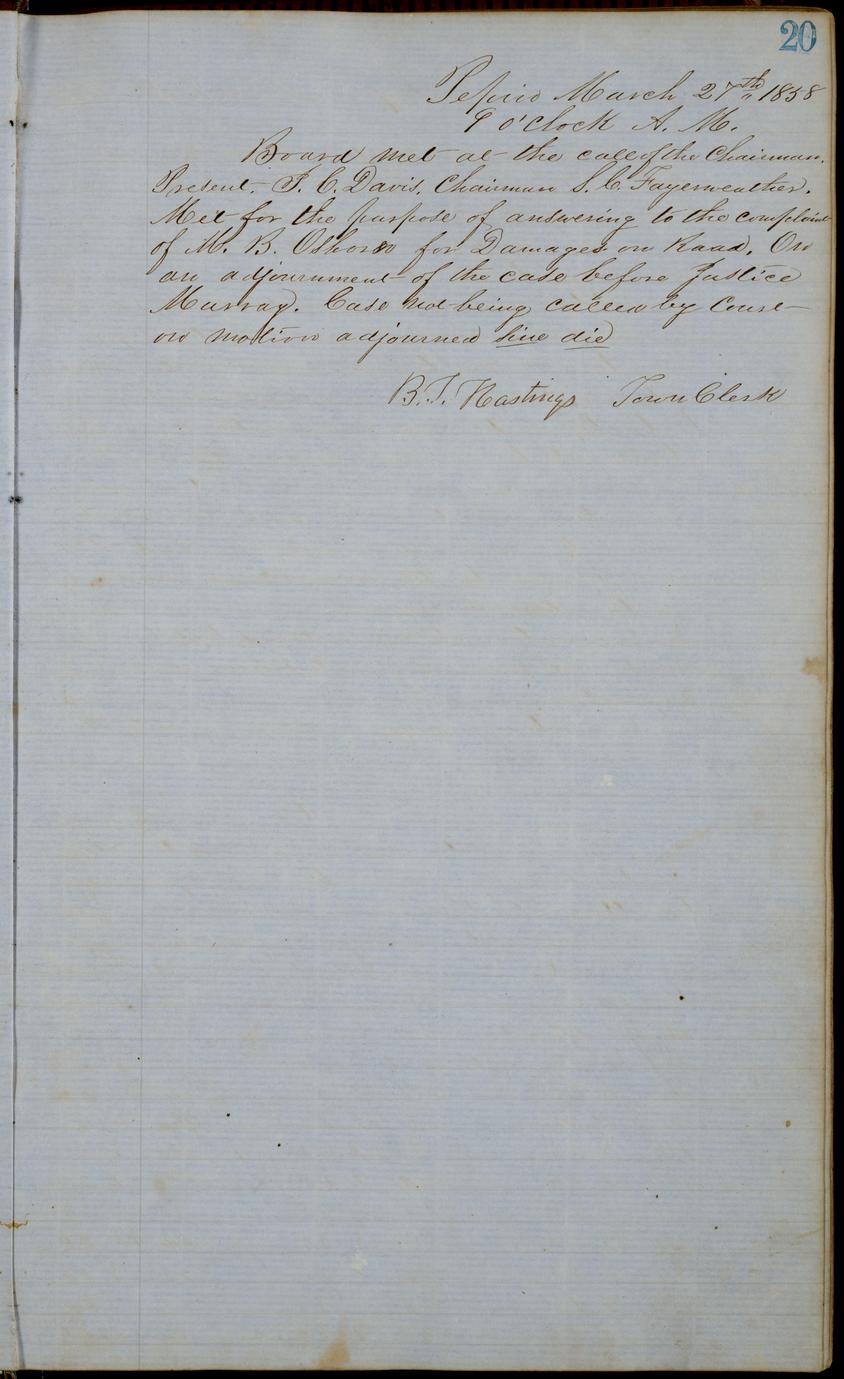 20
Pepin March 27th 1858
9 o'clock A. M.
Board met at the call of the Chairman.
Present. J. C. Davis. Chairman S. C. Fayerweather.
Met for the purpose of answering to the complaint
of M. B. Osborn for Damages on Road. On
an adjournment of the case before Justice
Murray. Case not being called by Court
on motion adjourned sine die
B. T. Hastings Town Clerk